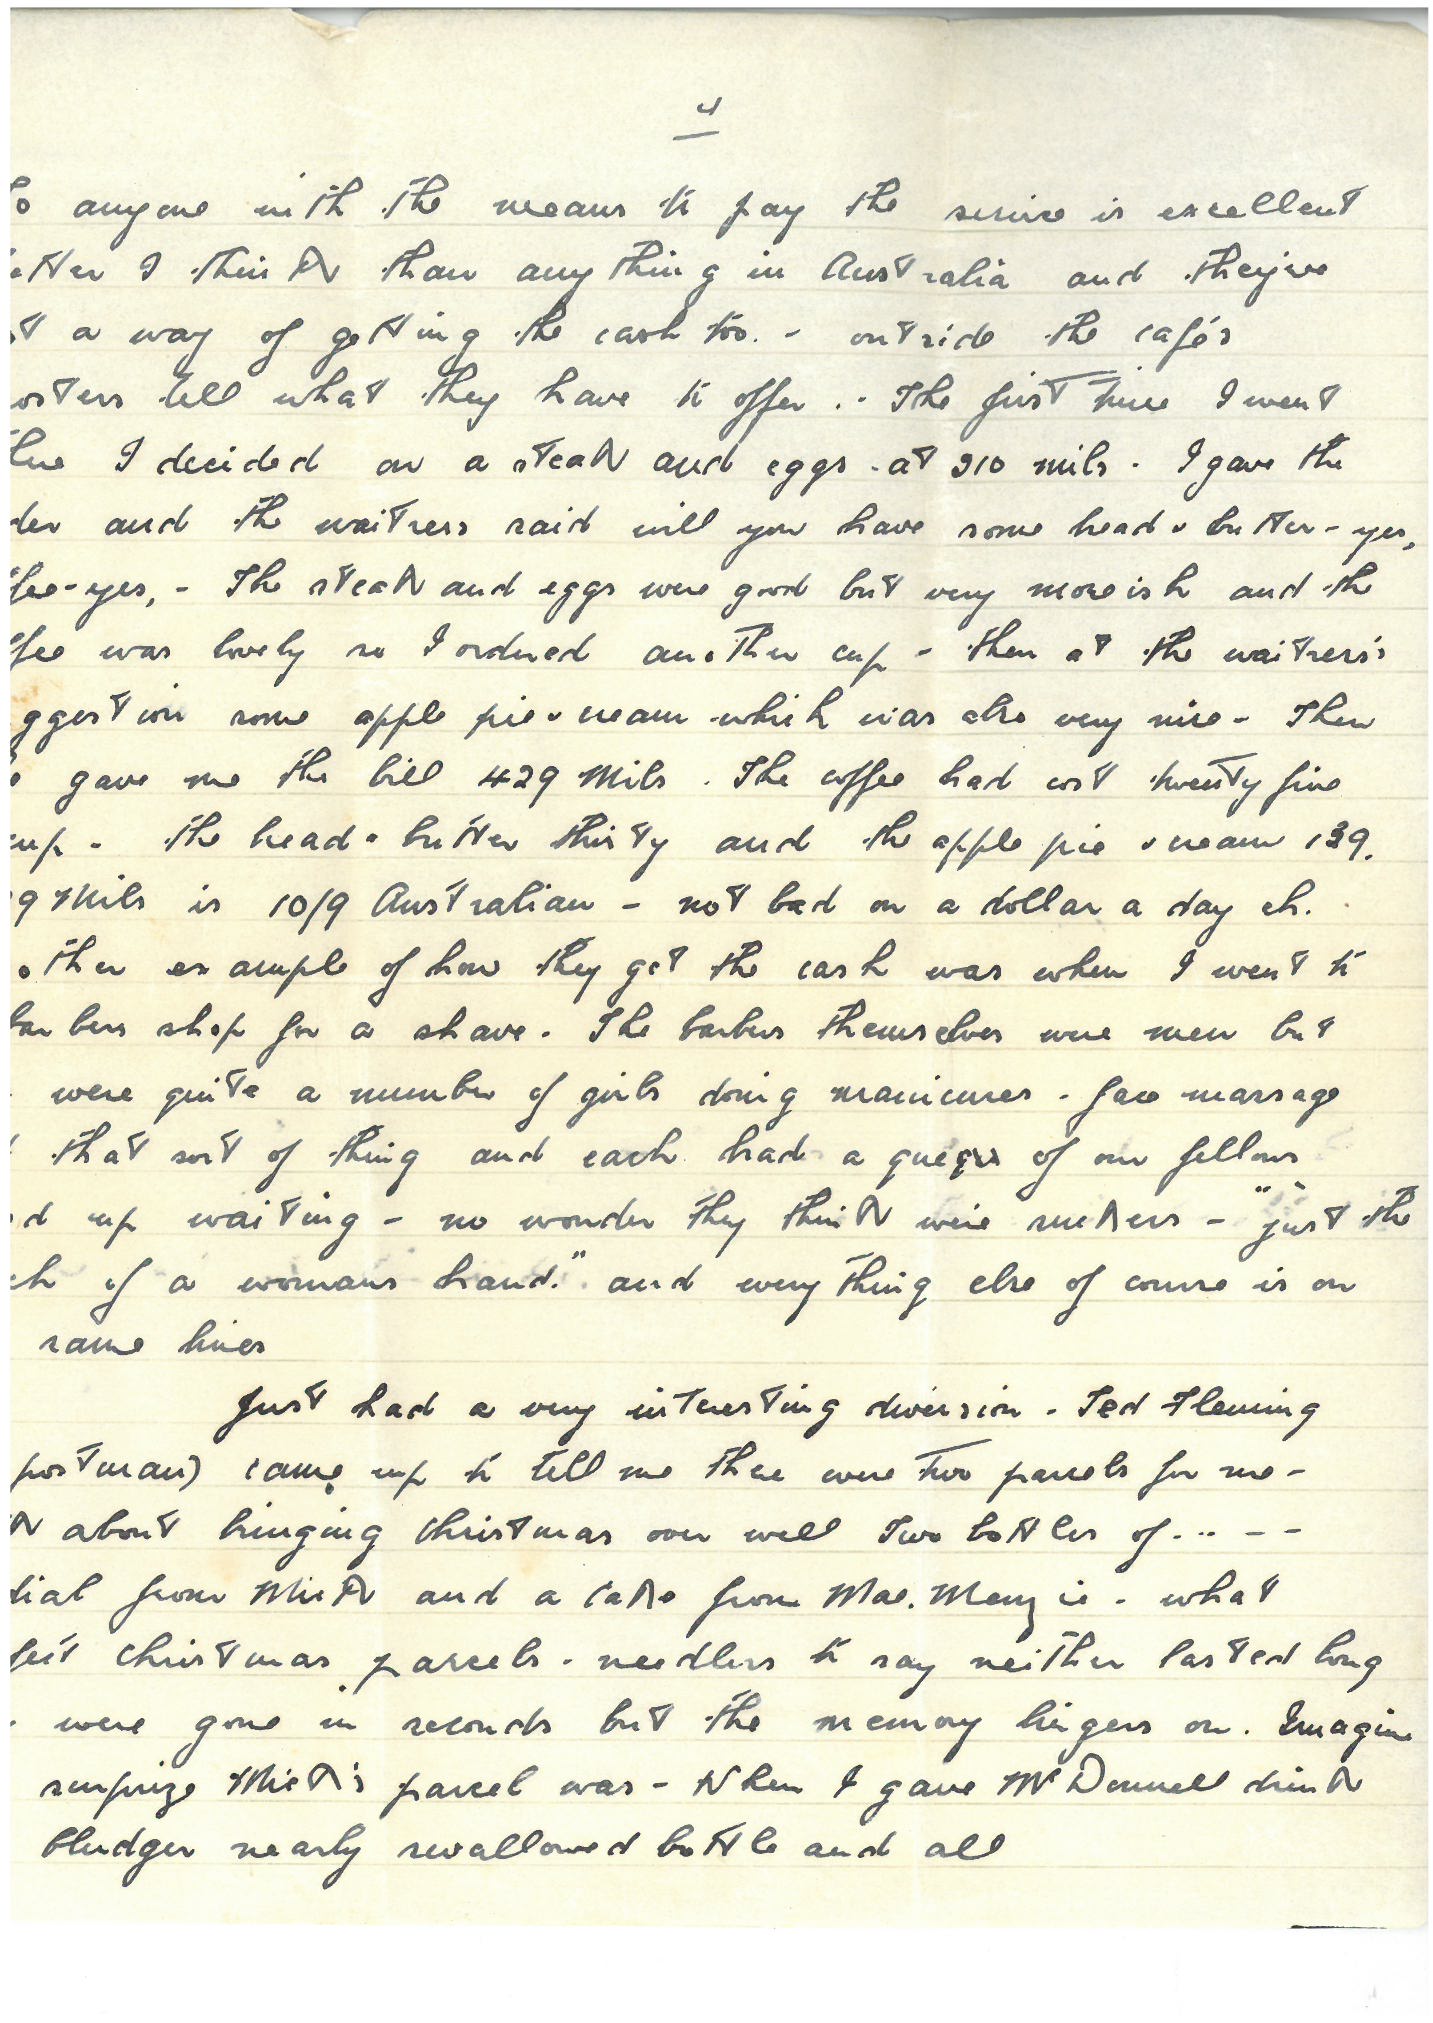 4
To anyone with the means to pay the service is excellent
etter I think than anything in Australia and they've
t a way of getting the cash too. - outside the cafés
osters tell what they have to offer .- The first time I went
I decided on a steak and eggs - at 210 mils. I gave the
der and the waitress said will you have some bread & butter - yes,
ffee - yes, - The steak and eggs were good but very moreish and the
ffee was lovely so I ordered another cup - then at the waitress's
ggestion some apple pie & cream which was also very nice - Then
e gave me the bill 429 Mils. The coffee had cost twenty five
cup - the bread & butter thirty and the apple pie & cream 139.
9 Mils is 10/9 Australian - not bad on a dollar a day eh.
other example of how they get the cash was when I went to
barbers shop for a shave. The barbers themselves were men but
were quite a number of girls doing manicures - face massage
that sort of thing and each had a queque of our fellows
d up waiting - no wonder they think we're suckers - "just the
ch of a womans hand." and everything else of course is on
same lines
Just had a very interesting diversion - Ted Fleming
postman) came up to tell me there were two parcels for me -
k about bringing Christmas over well Two bottles of .. .. - -
dial from Mick and a cake from Mac. Menzie - what
fect Christmas parcels - needless to say neither lasted long
were gone in seconds but the memory lingers on. Imagine
surprize Mick's parcel was - When I gave McDonnell drink
bludger nearly swallowed bottle and all